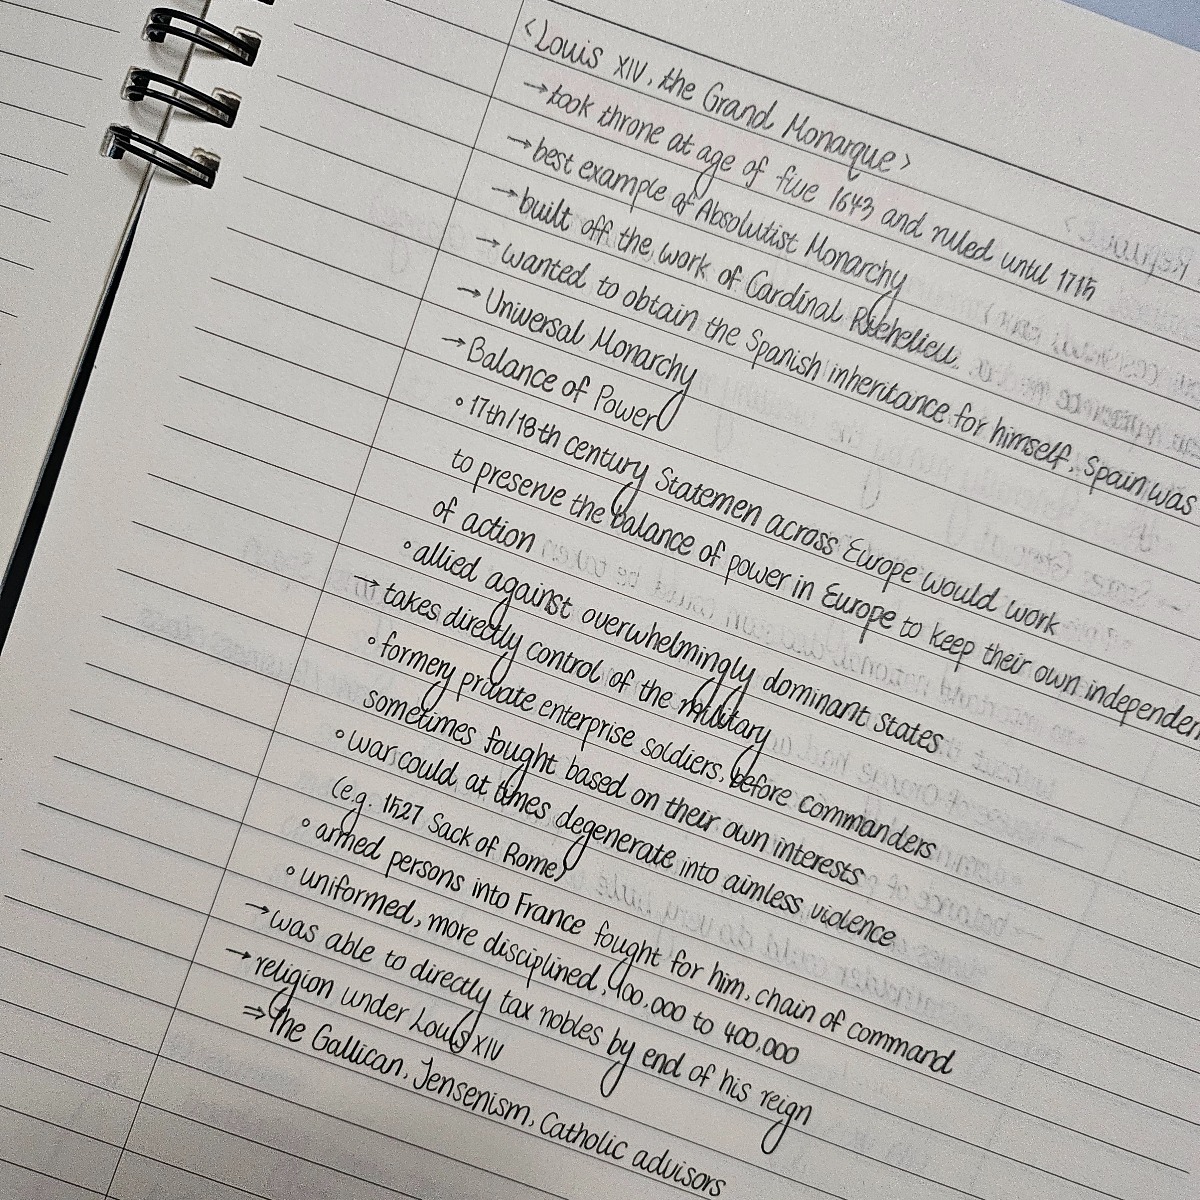 <Louis XIV, the Grand Monarque>
→took throne at age of five 1643 and ruled until 1715
→best example of Absolutist Monarchy
→built off the work of Cardinal Richelieu.
→wanted to obtain the Spanish inheritance for himself, Spain was
→Universal Monarchy
→Balance of Power
∘17th/18th century Statemen across Europe would work
to preserve the balance of power in Europe to keep their own independen
of action
∘allied against overwhelmingly dominant states
→takes directly control of the military
∘formery private enterprise soldiers, before commanders
sometimes fought based on their own interests
∘war could at times degenerate into aimless violence
(e.g. 1527 Sack of Rome)
∘armed persons into France fought for him, chain of command
∘uniformed, more disciplined, 100,000 to 400,000
→was able to directly tax nobles by end of his reign
→religion under Louis XIV
⇒the Gallican, Jensenism, Catholic advisors